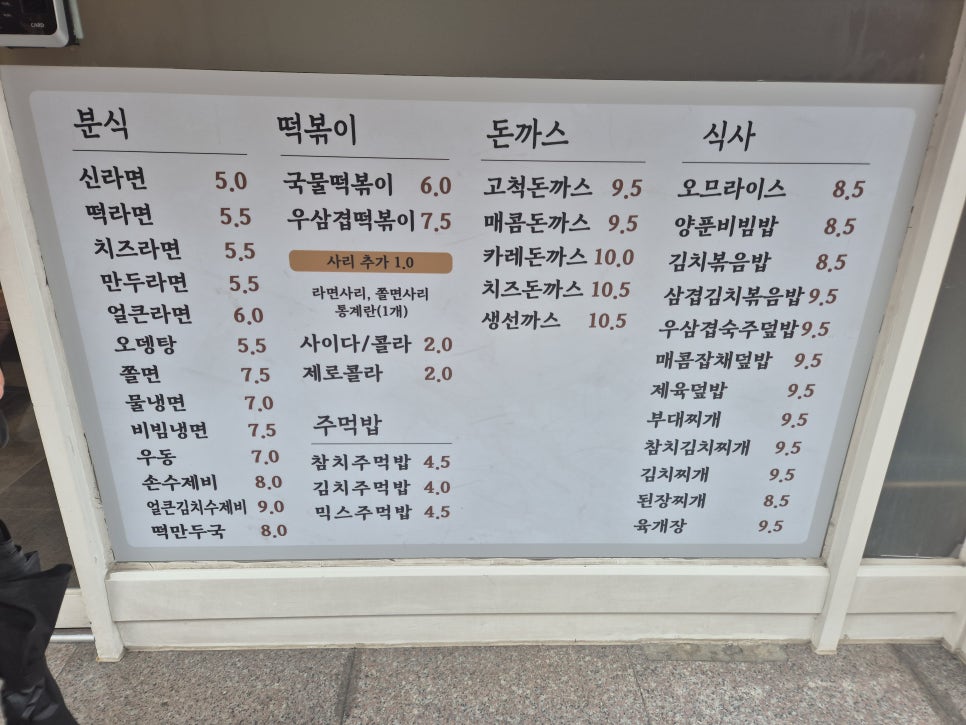 CARD
분식
신라면 5.0
떡라면 5.5
치즈라면 5.5
만두라면 5.5
얼큰라면 6.0
오뎅탕 5.5
쫄면 7.5
물냉면 7.0
비빔냉면 7.5
우동 7.0
손수제비 8.0
얼큰김치수제비 9.0
떡만두국 8.0
떡볶이
국물떡볶이 6.0
우삼겹떡볶이 7.5
사리 추가 1.0
라면사리, 쫄면사리
통계란(1개)
사이다/콜라 2.0
제로콜라 2.0
주먹밥
참치주먹밥 4.5
김치주먹밥 4.0
믹스주먹밥 4.5
돈까스
고척돈까스 9.5
매콤돈까스 9.5
카레돈까스 10.0
치즈돈까스 10.5
생선까스 10.5
식사
오므라이스 8.5
양푼비빔밥 8.5
김치볶음밥 8.5
삼겹김치볶음밥 9.5
우삼겹숙주덮밥 9.5
매콤잡채덮밥 9.5
제육덮밥 9.5
부대찌개 9.5
참치김치찌개 9.5
김치찌개 9.5
된장찌개 8.5
육개장 9.5